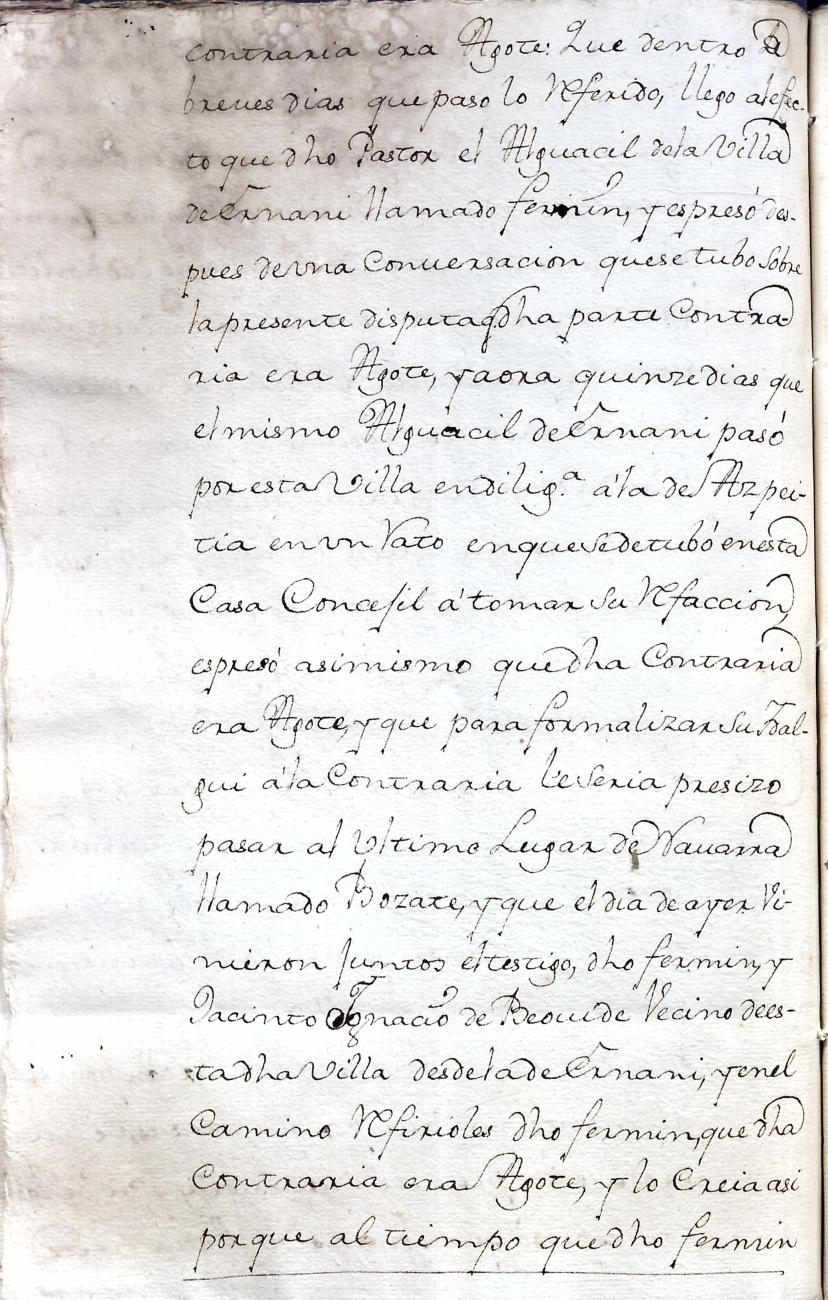 contraria era Agote: Que dentro de
breues dias que paso lo Referido, llego al efec-
to que dho Pastor el Alguacil de la Villa
de Ernani llamado fermin, y espresó des-
pues de vna Conuersacion que se tubo sobre
la presente disputa q dha parte Contra-
ria era Agote, y aora quinze dias que
el mismo Alguacil de Ernani pasó
por esta Villa en dilig.a á la de Azpei-
tia en vn Rato en que se detubó en esta
Casa Concesil á tomar su Refaccion,
espresó asimismo que dha Contraria
era Agote, y que para formalizar su Idal-
gui á la Contraria le seria presizo
pasar al Vltimo Lugar de Nauarra
llamado Bozate, y que el dia de ayer Vi-
nieron Juntos el testigo, dho fermin, y
Jacinto Ignacio de Beouide Vecino de es-
ta dha Villa desde la de Ernani, y en el
Camino Refirioles dho fermin, que dha
Contraria era Agote, y lo Creia asi
por que al tiempo que dho fermin